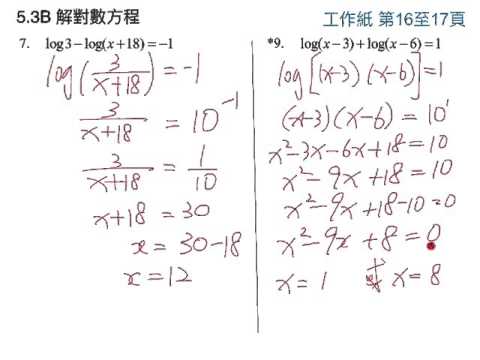 5.3B 解對數方程
工作紙 第16至17頁
7. log3−log(x+18)=−1
log(3/(x+18))=−1
3/(x+18) = 10^−1
3/(x+18) = 1/10
x+18 = 30
x = 30−18
x = 12
*9. log(x−3)+log(x−6)=1
log[(x−3)(x−6)]=1
(x−3)(x−6) = 10^1
x²−3x−6x+18=10
x²−9x+18=10
x²−9x+18−10=0
x²−9x+8=0
x=1 x=8